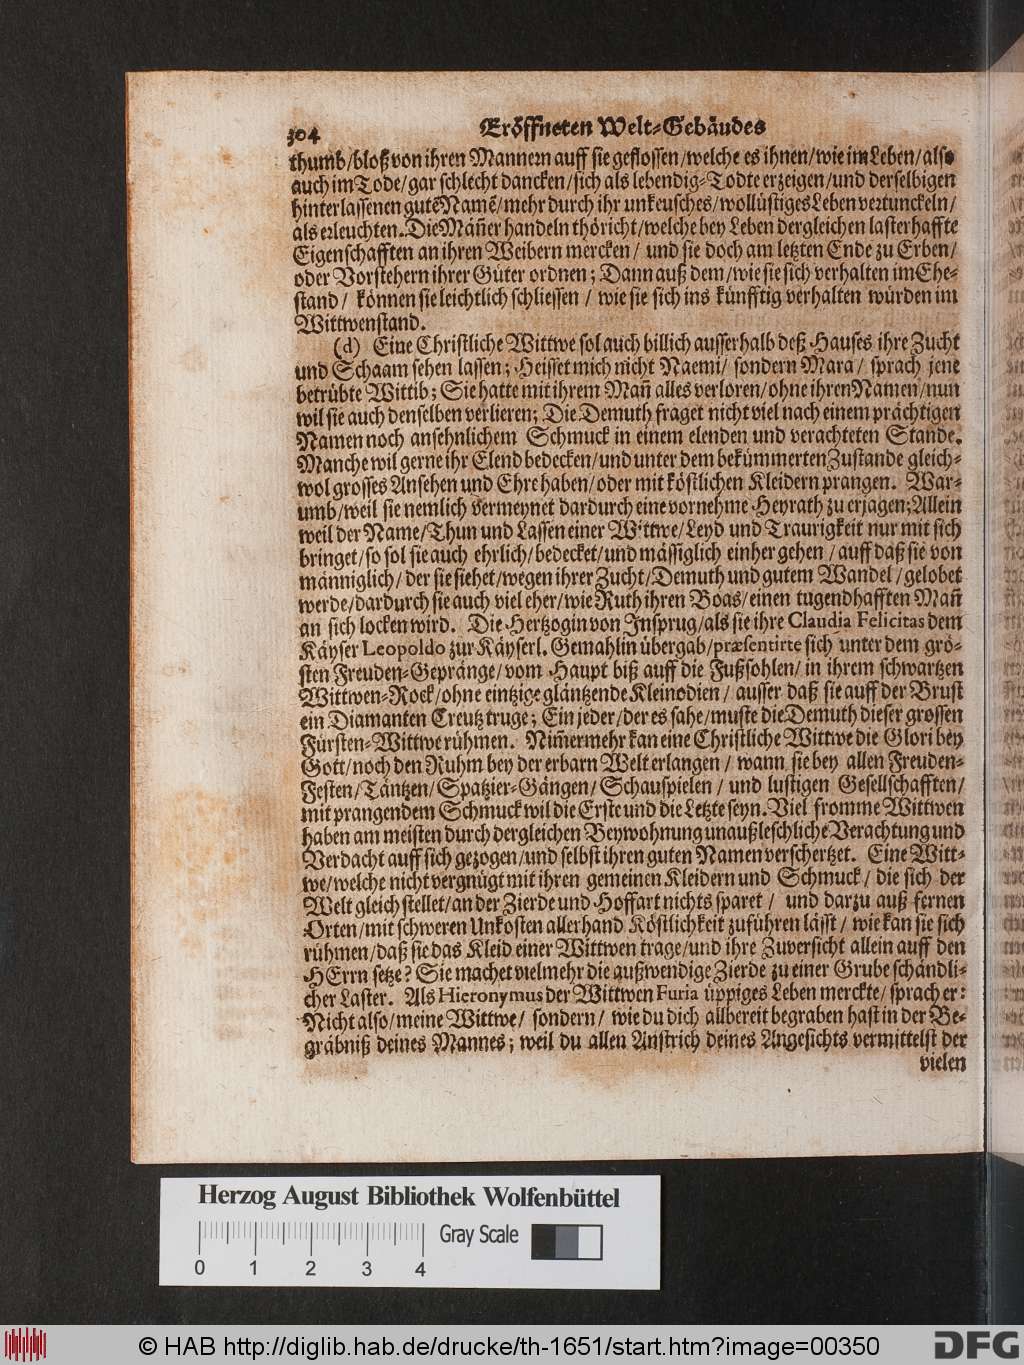 304
Eröffneten Welt-Gebäudes
thumb/bloß von ihren Mannern auff sie geflossen/welche es ihnen/wie im Leben/also
auch im Tode/gar schlecht dancken/sich als lebendig-Todte erzeigen/und derselbigen
hinterlassenen gutẽ Namẽ/mehr durch ihr unkeusches/wollüstiges Leben vertunckeln/
als erleuchten. Die Mäñer handeln thöricht/welche bey Leben dergleichen lasterhaffte
Eigenschafften an ihren Weibern mercken/ und sie doch am letzten Ende zu Erben/
oder Vorstehern ihrer Güter ordnen; Dann auß dem/wie sie sich verhalten im Ehe-
stand/ können sie leichtlich schliessen/ wie sie sich ins künfftig verhalten würden im
Wittwenstand.
(d) Eine Christliche Wittwe sol auch billich ausserhalb deß Hauses ihre Zucht
und Schaam sehen lassen; Heisset mich nicht Naemi/ sondern Mara/ sprach jene
betrübte Wittib; Sie hatte mit ihrem Mañ alles verloren/ohne ihren Namen/nun
wil sie auch denselben verlieren; Die Demuth fraget nicht viel nach einem prächtigen
Namen noch ansehnlichem Schmuck in einem elenden und verachteten Stande.
Manche wil gerne ihr Elend bedecken/und unter dem bekümmerten Zustande gleich-
wol grosses Ansehen und Ehre haben/oder mit köstlichen Kleidern prangen. War-
umb/weil sie nemlich vermeynet dardurch eine vornehme Heyrath zu erjagen; Allein
weil der Name/Thun und Lassen einer Wittwe/Leyd und Traurigkeit nur mit sich
bringet/so sol sie auch ehrlich/bedecket/und mässiglich einher gehen/auff daß sie von
männiglich/der sie siehet/wegen ihrer Zucht/Demuth und gutem Wandel/gelobet
werde/dardurch sie auch viel eher/wie Ruth ihren Boas/einen tugendhafften Mañ
an sich locken wird. Die Hertzogin von Jnsprug/als sie ihre Claudia Felicitas dem
Käyser Leopoldo zur Käyserl. Gemahlin übergab/præsentirte sich unter dem grö-
sten Freuden-Gepränge/vom Haupt biß auff die Fußsohlen/in ihrem schwartzen
Wittwen-Rock/ohne eintzige gläntzende Kleinodien/ ausser daß sie auff der Brust
ein Diamanten Creutz truge; Ein jeder/der es sahe/muste die Demuth dieser grossen
Fürsten-Wittwe rühmen. Nim̃ermehr kan eine Christliche Wittwe die Glori bey
Gott/noch den Ruhm bey der erbarn Welt erlangen/ wann sie bey allen Freuden-
Festen/Täntzen/Spatzier-Gängen/Schauspielen/ und lustigen Gesellschafften/
mit prangendem Schmuck wil die Erste und die Letzte seyn. Viel fromme Wittwen
haben am meisten durch dergleichen Beywohnung unaußleschliche Verachtung und
Verdacht auff sich gezogen/und selbst ihren guten Namen verschertzet. Eine Witt-
we/welche nicht vergnügt mit ihren gemeinen Kleidern und Schmuck/ die sich der
Welt gleich stellet/an der Zierde und Hoffart nichts sparet/ und darzu auß fernen
Orten/mit schweren Unkosten allerhand Köstlichkeit zuführen lässt/ wie kan sie sich
rühmen/daß sie das Kleid einer Wittwen trage/und ihre Zuversicht allein auff den
HErrn setze? Sie machet vielmehr die außwendige Zierde zu einer Grube schändli-
cher Laster. Als Hieronymus der Wittwen Furia üppiges Leben merckte/sprach er:
Nicht also/meine Wittwe/ sondern/ wie du dich allbereit begraben hast in der Be-
gräbniß deines Mannes; weil du allen Anstrich deines Angesichts vermittelst der
vielen
Herzog August Bibliothek Wolfenbüttel
Gray Scale
0 1 2 3 4
© HAB http://diglib.hab.de/drucke/th-1651/start.htm?image=00350
DFG